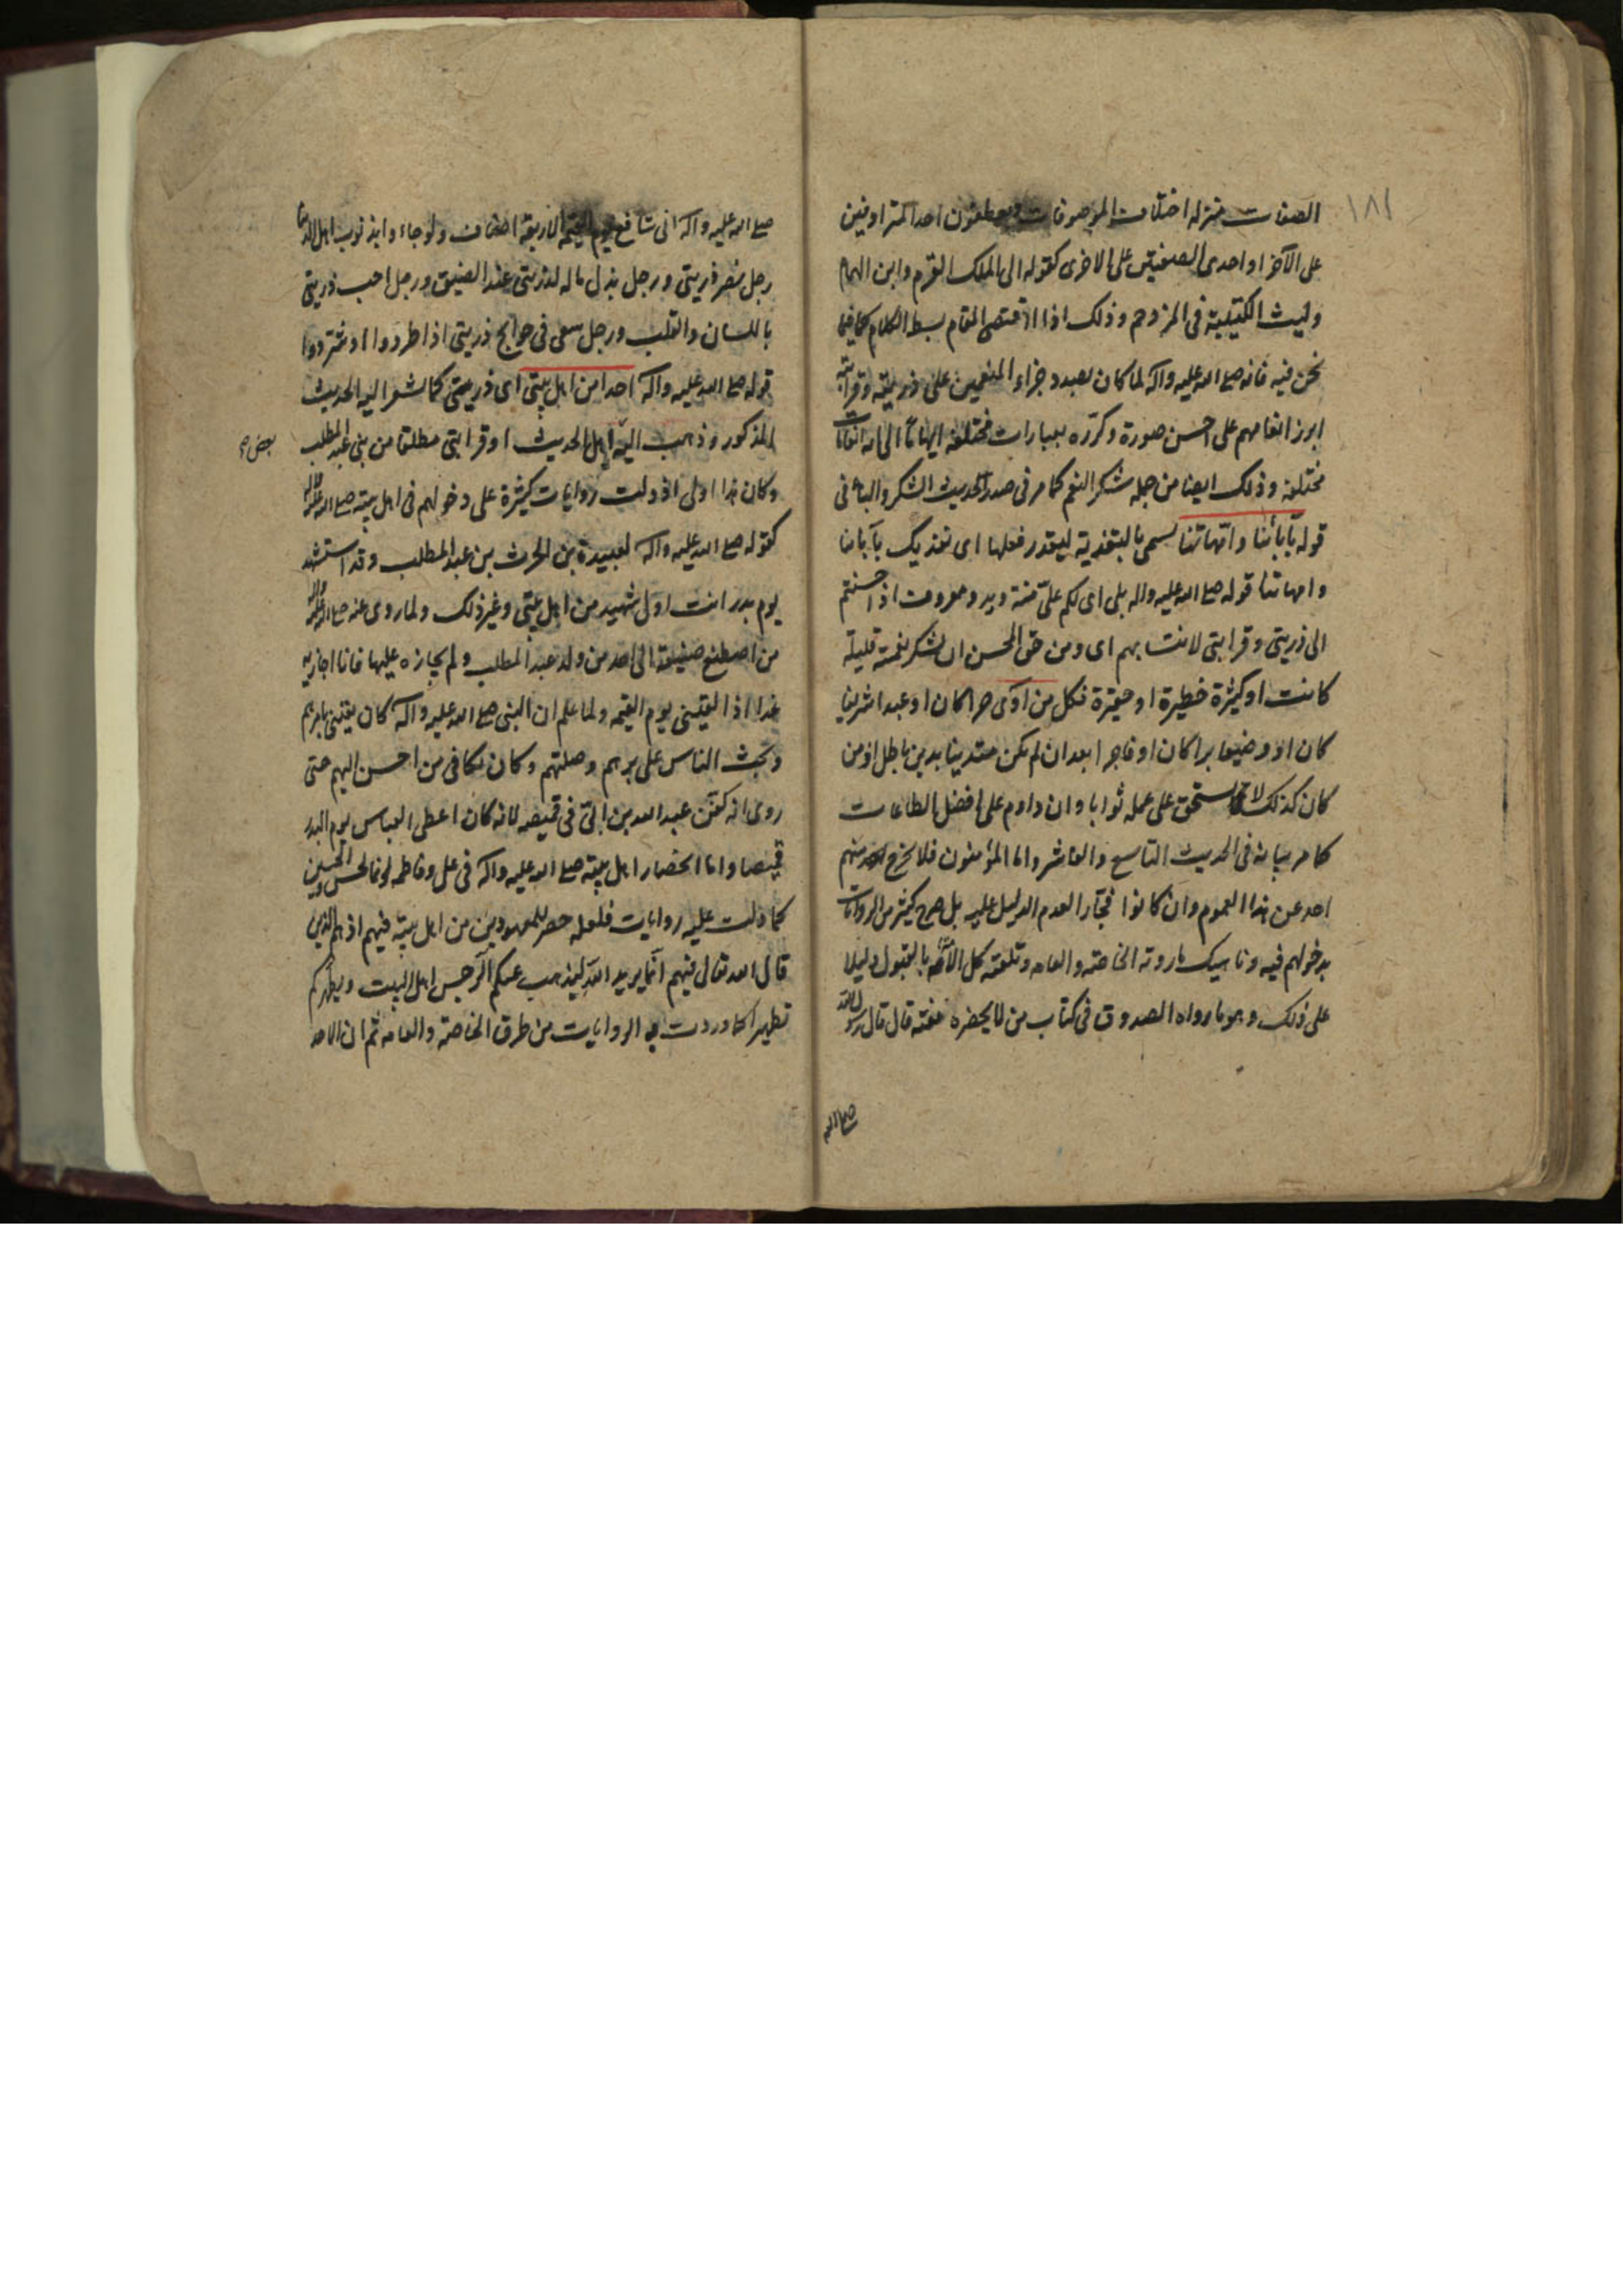 ١٨١
الصفات منزلة اختلاف الموصوفات ويعطفون احد المترادفين
على الآخر او احدى الصفتين على الاخرى كقوله الى الملك القرم وابن الهمام
وليث الكتيبة فى المزدحم وذلك اذا اقتضى المقام بسط الكلام كما فيما
نحن فيه فانه صلى الله عليه وآله لما كان بصدد جزاء المنعمين على ذريته وقرابته
ابرز انعامهم على احسن صورة وكرّره بعبارات مختلفة ايهاما الى انه انعامات
مختلفة وذلك ايضا من جملة شكر النعم كما مر فى صدر الحديث الشكر والباء فى
قوله بآبائنا وامّهاتنا يسمى بالتفدية ليقدر فعلها اى نفديك بآبائنا
وامهاتنا قوله صلى الله عليه واله بلى اى لكم علىّ منة ويد ومعروف اذا احسنتم
الى ذريتى وقرابتى لانت بهم اى ومن حق المحسن ان يشكر نعمته قليلة
كانت او كثيرة خطيرة او حقيرة فكل من آوى حرا كان او عبدا شريفا
كان او وضيعا برا كان او فاجرا بعد ان لم يكن متدينا بدين باطل اذ من
كان كذلك لا يستحق على عمله ثوابا وان داوم على افضل الطاعات
كما مر بيانه فى الحديث التاسع والعاشر واما المؤمنون فلا يخرج منهم
احد عن هذا العموم وان كانوا فجّارا لعدم الدليل عليه بل صرح كثير من الروايات
بدخولهم فيه وناهيك ما روته الخاصة والعامه وتلقته كل الامّة بالقبول دليلا
على ذلك وهو ما رواه الصدوق فى كتاب من لا يحضره الفقيه قال قال رسول الله
صلى الله
صلى الله عليه وآله انى شافع يوم القيمة لاربعة اصناف ولو جاءوا بذنوب اهل الدنيا
رجل نصر ذريتى ورجل بذل ماله لذريتى عند الضيق ورجل احب ذريتى
باللسان والقلب ورجل سعى فى حوائج ذريتى اذا طردوا او شردوا
قوله صلى الله عليه وآله احدا من اهل بيتى اى ذريتى كما يشعر اليه الحديث
المذكور وذهب اليه اهل الحديث او قرابتى مطلقا من بنى عبد المطلب
بعض
وكان هذا اولى اذ دلت روايات كثيرة على دخولهم فى اهل بيته صلى الله عليه وآله
كقوله صلى الله عليه وآله لعبيدة بن الحرث بن عبد المطلب وقد استشهد
يوم بدر انت اول شهيد من اهل بيتى وغير ذلك ولما روى عنه صلى الله عليه وآله
من اصطنع صنيعة الى احد من ولد عبد المطلب ولم يجازه عليها فانا اجازيه
غدا اذا لقينى يوم القيمه ولما علم ان النبى صلى الله عليه وآله كان يعتنى بامرهم
ويحث الناس على برهم وصلتهم وكان يكافى من احسن اليهم حتى
روى انه كفّن عبد الله بن ابىّ فى قميصه لانه كان اعطى العباس يوم البدر
قميصا واما انحصار اهل بيته صلى الله عليه وآله فى على وفاطمه والحسن والحسين
كما دلت عليه روايات فلعله حصر للمعهودين من اهل بيته فيهم اذ هم الذين
قال الله تعالى فيهم انّما يريد اللّه ليذهب عنكم الرّجس اهل البيت ويطهركم
تطهيرا كما وردت به الروايات من طرق الخاصة والعامه ثم ان الاحد